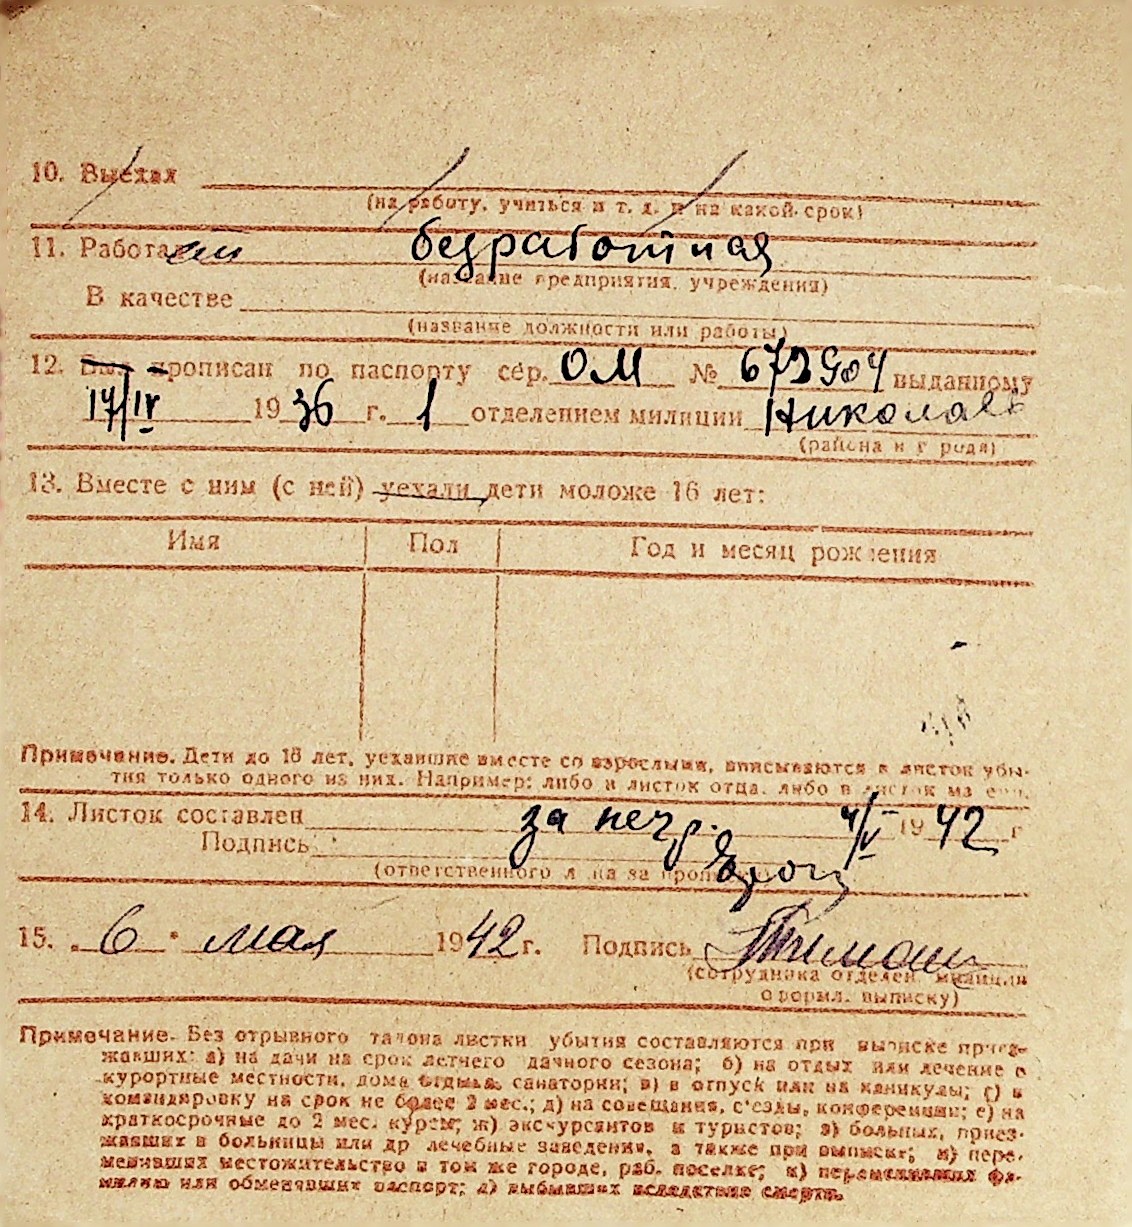 10. Выехал
(на работу, учиться и т. д. и на какой срок)
11. Работает безработная
(название предприятия, учреждения)
В качестве
(название должности или работы)
12. Был прописан по паспорту сер. ОМ № 673904 выданному
17/IV 1936 г. 1 отделением милиции Николаев
(района и города)
13. Вместе с ним (с ней) уехали дети моложе 16 лет:
Имя Пол Год и месяц рождения
Примечание. Дети до 16 лет, уехавшие вместе со взрослыми, вписываются в листок убы-
тия только одного из них. Например: либо в листок отца, либо в листок ма
14. Листок составлен за 4/V 1942 г
Подпись
(ответственного лица за прописку)
15. „6" мая 1942 г. Подпись
(сотрудника отделен. милиции
оформл. выписку)
Примечание. Без отрывного талона листки убытия составляются при выписке приез-
жавших: а) на дачи на срок летнего дачного сезона; б) на отдых или лечение в
курортные местности, дома отдыха, санатории; в) в отпуск или на каникулы; г) в
командировку на срок не более 2 мес.; д) на совещания, с'езды, конференции; е) на
краткосрочные до 2 мес. курсы; ж) экскурсантов и туристов; з) больных, приез-
жавших в больницы или др лечебные заведения, а также при выписке; и) пере-
менивших местожительство в том же городе, раб. поселке; к) переменивших фа-
милию или обменявших паспорт; л) выбывших вследствие смерти.